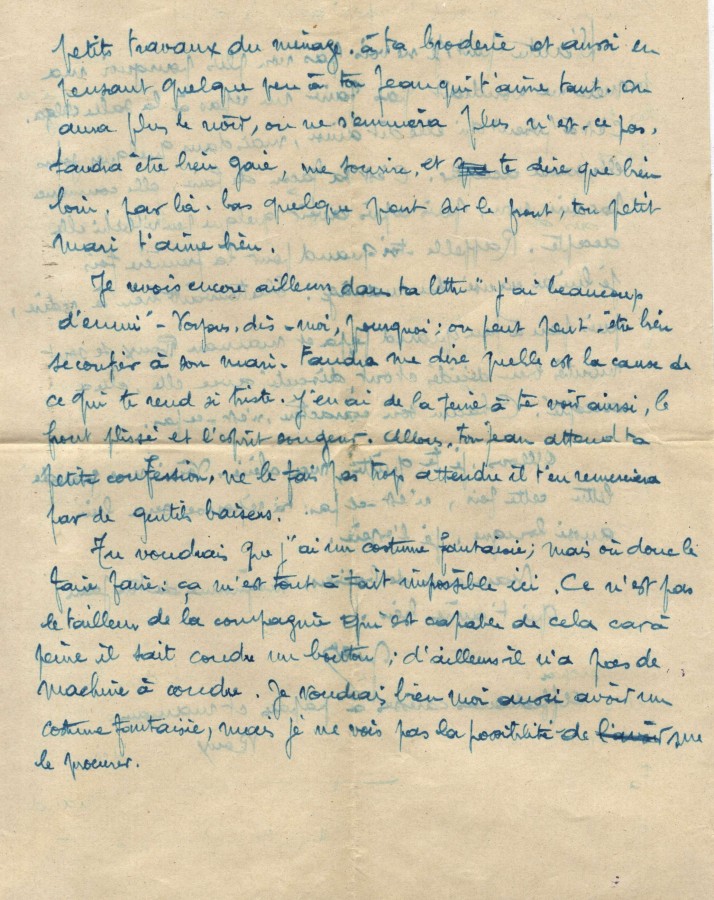 petits travaux du ménage. à ta broderie et aussi en
pensant quelque peu à ton Jean qui t'aime tant. On
aura plus le noir, on ne s'ennuiera plus n'est-ce pas.
Faudra être bien gaie, me sourire, et te dire que bien
loin, par là-bas quelque part sur le front, ton petit
mari t'aime bien.
Je revois encore ailleurs dans ta lettre "j'ai beaucoup
d'ennui" - Voyons, dis-moi, pourquoi; on peut peut-être bien
se confier à son mari. Faudra me dire quelle est la cause de
ce qui te rend si triste. J'en ai de la peine à te voir ainsi, le
front plissé et l'esprit songeur. Allons, ton Jean attend ta
petite confession, ne le fais pas trop attendre il t'en remerciera
par de gentils baisers.
Tu voudrais que j'ai un costume fantaisie; mais où donc le
faire faire: ça m'est tout à fait impossible ici. Ce n'est pas
le tailleur de la compagnie qui est capable de cela car à
peine il sait coudre un bouton; d'ailleurs il n'a pas de
machine à coudre. Je voudrais bien moi aussi avoir un
costume fantaisie, mais je ne vois pas la possibilité de l'avoir me
le procurer.